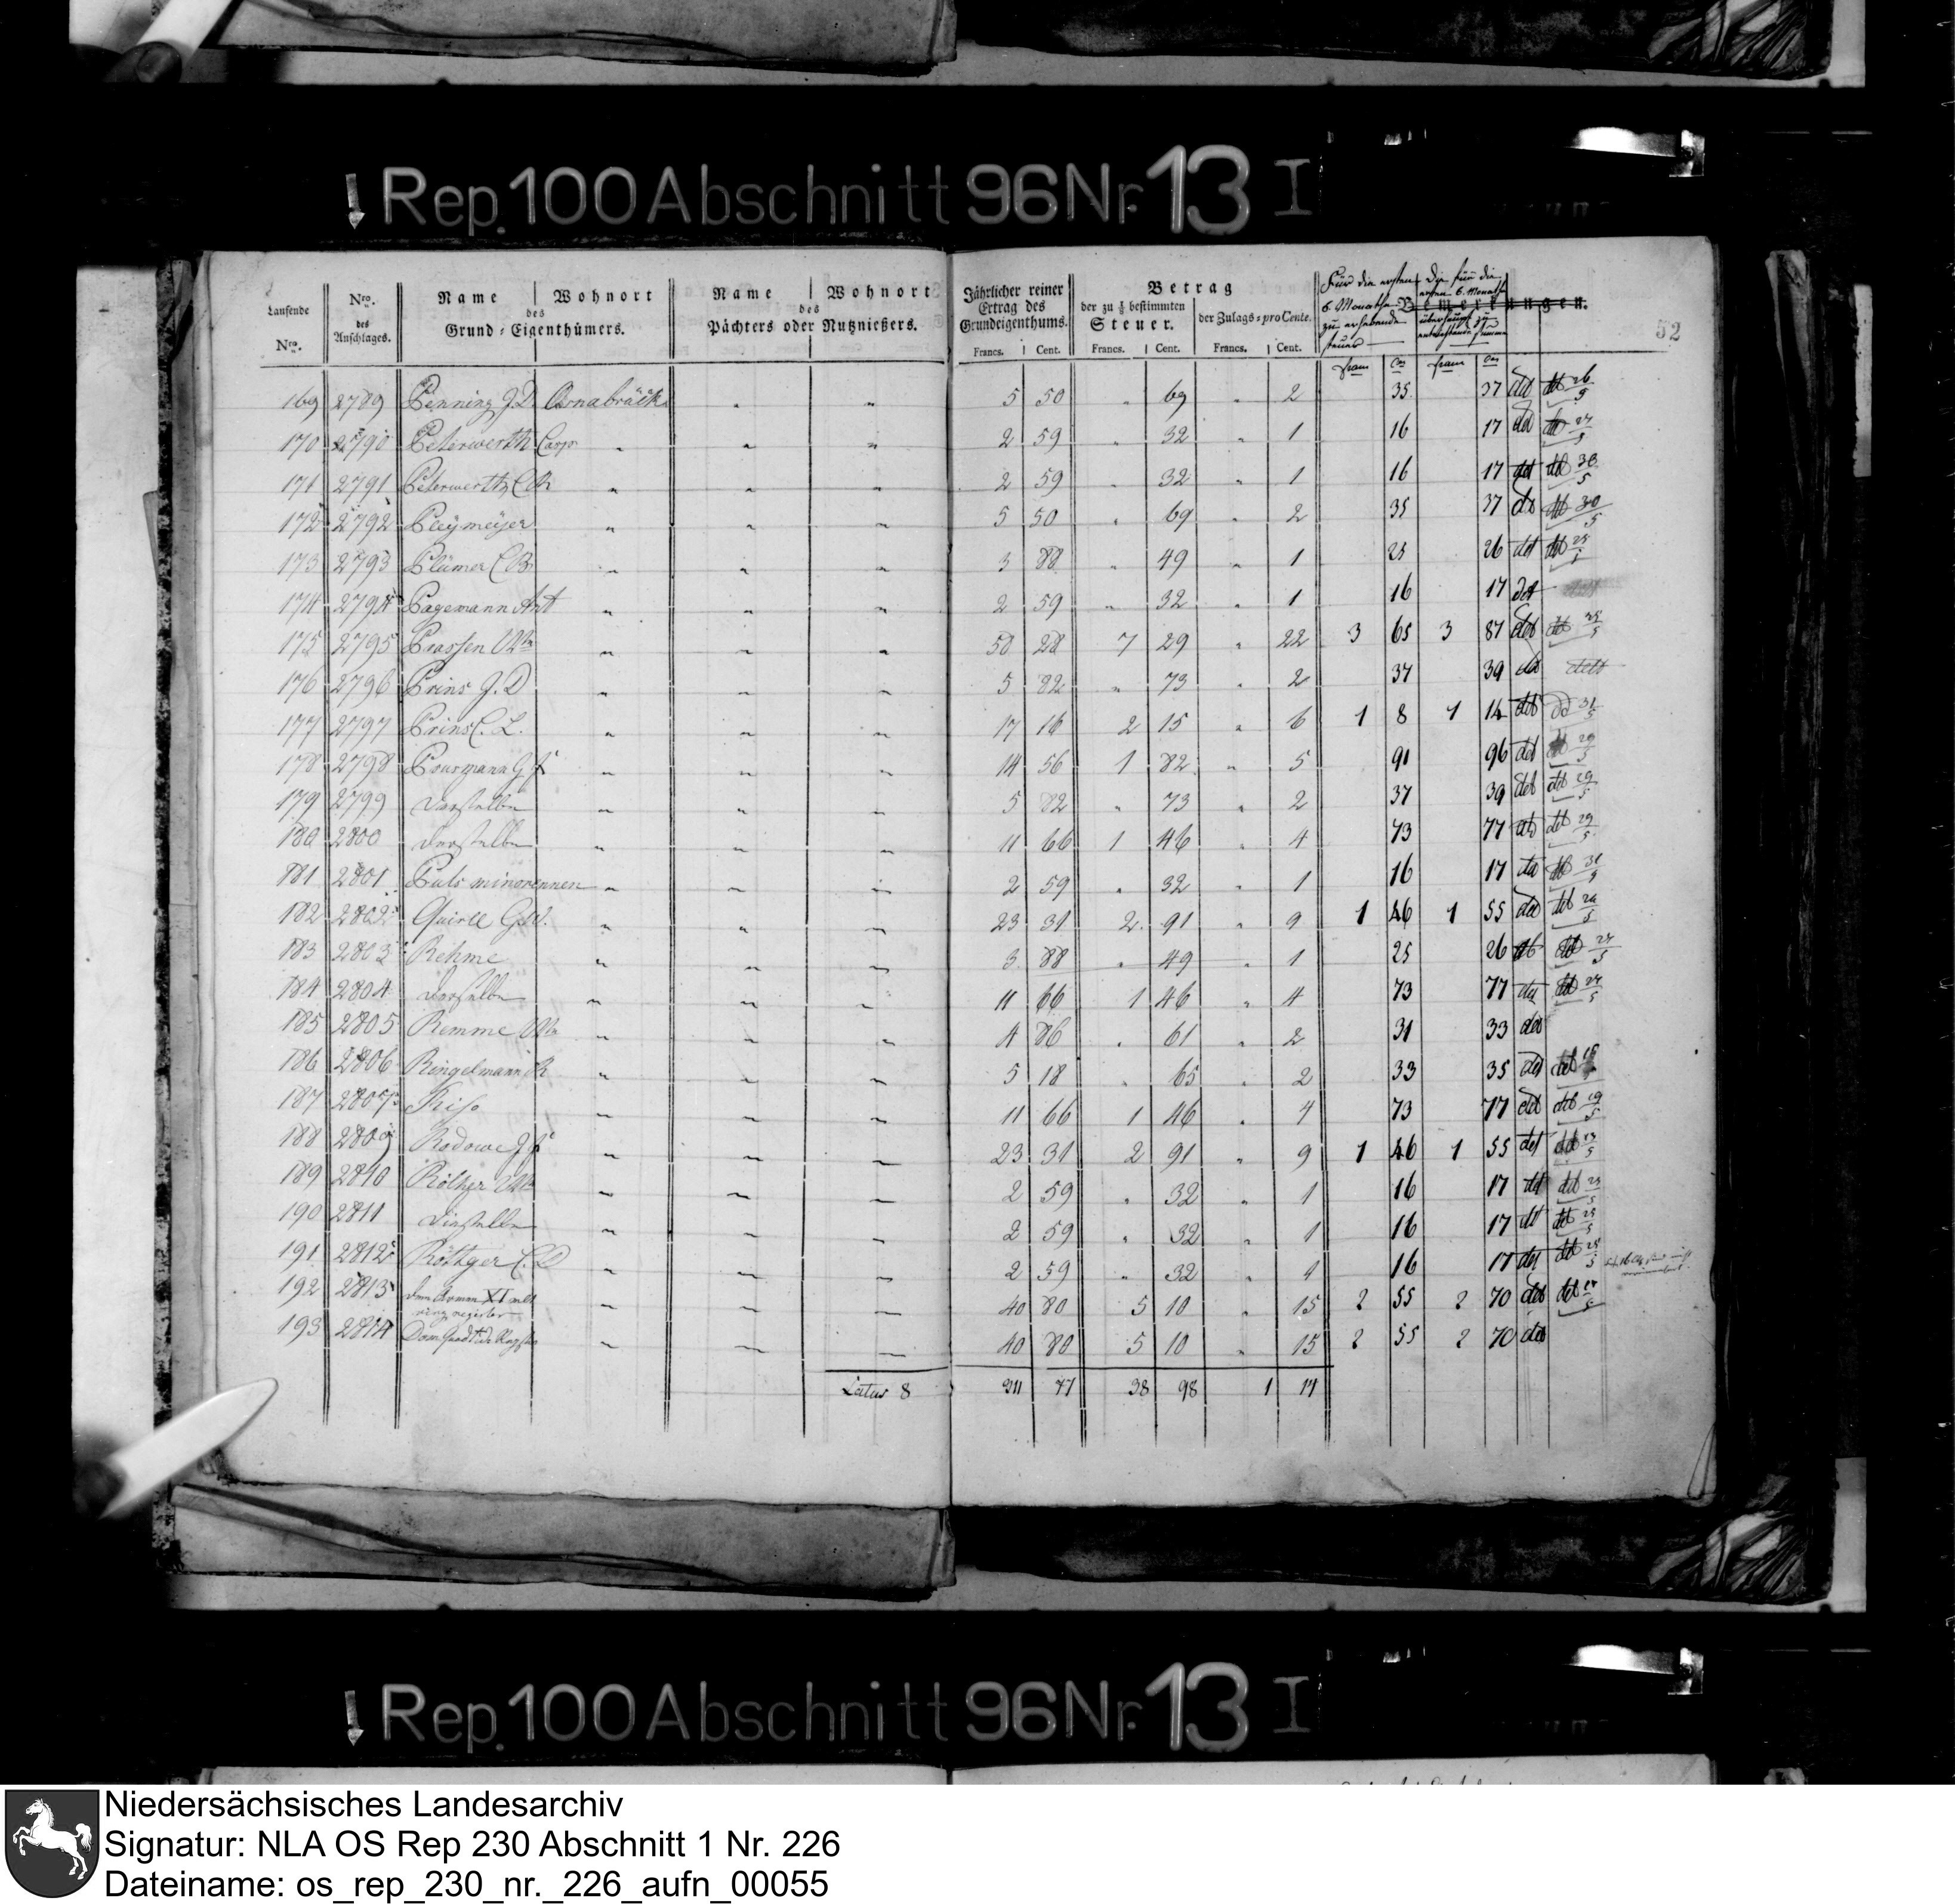 Rep. 100 Abschnitt 96 Nr. 13 I
Laufende Nro. | Nro. des Anschlages. | Name | Wohnort des Grund-Eigenthümers. | Name | Wohnort des Pächters oder Nutznießers. | Jährlicher reiner Ertrag des Grundeigenthums. | Betrag der zu ⅛ bestimmten Steuer. | der Zulags-pro Cente. | Für die ersten 6 Monathe zu erhebende Steuer | Die für die ersten 6 Monathe überhaupt zu entrichtende Summe | Bemerkungen.
52
Francs. | Cent. | Francs. | Cent. | Francs. | Cent. | franc | Cen | franc | Cen
169 2789 Penning J. D. Osnabrück " " 5 50 " 69 " 2 35 37 det det 26/5
170 2790 Peterwerth Casp " " " 2 59 " 32 " 1 16 17 det 27/5
171 2791 Peterwerth " " " 2 59 " 32 " 1 16 17 det det 30/5
172 2792 Pleymeyer " " " 5 50 " 69 " 2 35 37 det det 30/5
173 2793 Plümer " " " 3 88 " 49 " 1 25 26 det det 25/5
174 2794 Pagemann Ant " " " 2 59 " 32 " 1 16 17 det
175 2795 Prassen Ww " " " 58 28 7 29 " 22 3 65 3 87 det det 25/5
176 2796 Prins J. D " " " 5 82 " 73 " 2 37 39 det
177 2797 Prins C. L. " " " 17 16 2 15 " 6 1 8 1 14 det 31/5
178 2798 " " " 14 56 1 82 " 5 91 96 det 29/5
179 2799 derselbe " " " 5 82 " 73 " 2 37 39 det det 29/5
180 2800 derselbe " " " 11 66 1 46 " 4 73 77 det det 29/5
181 2801 Puls minorennen " " " 2 59 " 32 " 1 16 17 det det 31/5
182 2802 Quirll " " " 23 31 2 91 " 9 1 46 1 55 det det 26/5
183 2803 Rehme " " " 3 88 " 49 " 1 25 26 det det 27/5
184 2804 derselbe " " " 11 66 1 46 " 4 73 77 det det 27/5
185 2805 Remme Ww " " " 4 86 " 61 " 2 31 33 det
186 2806 Ringelmann " " " 5 18 " 65 " 2 33 35 det det
187 " " " 11 66 1 46 " 4 73 77 det det 19/5
188 2809 Rodowe J " " " 23 31 2 91 " 9 1 46 1 55 det det 23/5
189 2810 Röttger Ww " " " 2 59 " 32 " 1 16 17 det det 23/5
190 2811 dieselbe " " " 2 59 " 32 " 1 16 17 det det 23/5
191 2812 Röttger C. D " " " 2 59 " 32 " 1 16 17 det det 28/5
192 2813 " " " 40 80 5 10 " 15 2 55 2 70 det det
193 2814 " " " 40 80 5 10 " 15 2 55 2 70 det
Latus 8 311 77 38 98 1 17
Rep. 100 Abschnitt 96 Nr. 13 I
Niedersächsisches Landesarchiv
Signatur: NLA OS Rep 230 Abschnitt 1 Nr. 226
Dateiname: os_rep_230_nr._226_aufn_00055